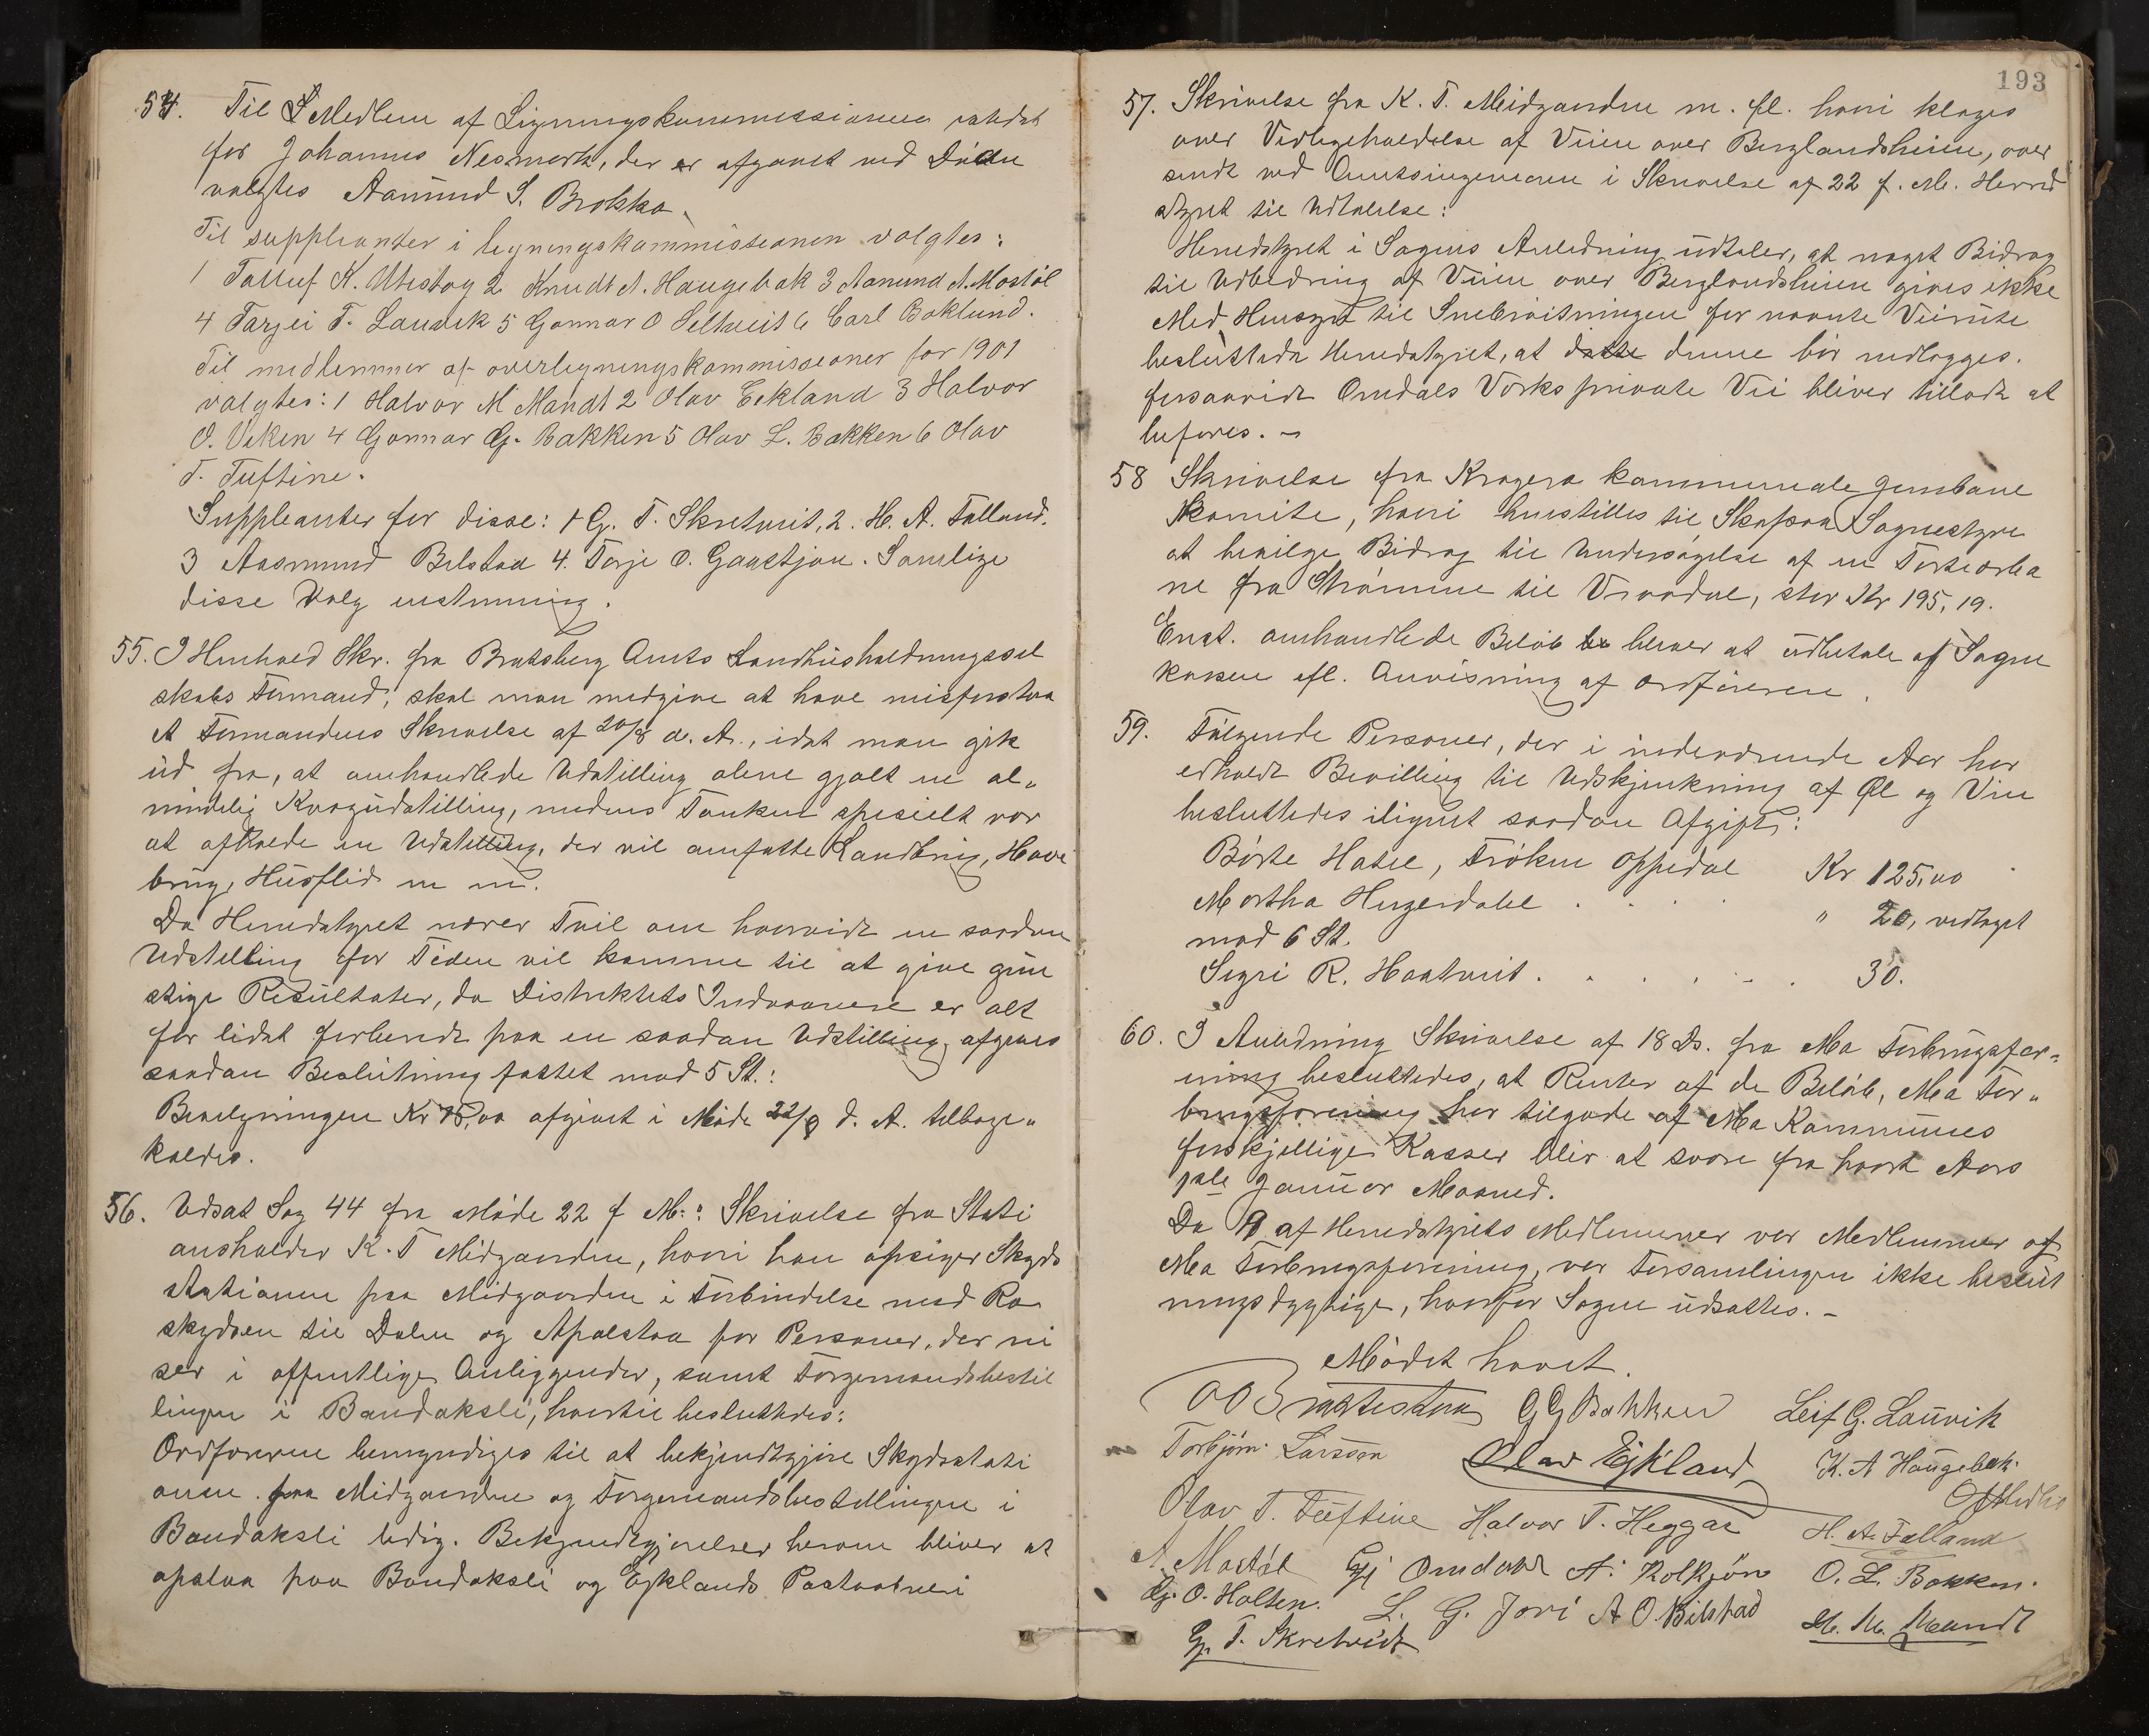 54. Til Medlem af Ligningskommissionen istedet
for Johannes Nesmark, der er afgaaet ved Døden
valgtes Aamund S. Brokka.
Til suppleanter i ligningskommissionen valgtes:
1 Tallef K. Utistog 2 Knudt A. Haugebak 3 Aamund A. Mostøl
4 Tarjei T. Laudek 5 Gunnar O Seltveit 6 Carl Boklund.
Til medlemmer af overligningskommissionen for 1901
valgtes: 1 Halvor M Mandt 2 Olav Eikland 3 Halvor
O. Veken 4 Gunnar G. Bakken 5 Olav L. Bakken 6 Olav
T. Tuftine.
Suppleanter for disse: 1 G. T. Skretveit, 2. H. A. Falland.
3 Aasmund Bilstad 4. Torje O. Gaastjøn. Samtlige
disse Valg enstemmig.
55. I Henhold Skr. fra Bratsberg Amts Landhusholdningssel
skabs Formand, skal man medgive at have misforstaa
et Formandens Skrivelse af 20/8 d. A., idet man gik
ud fra, at omhandlede Udstilling alene gjalt en al„
mindelig Kvægudstilling, medens Tanken specielt var
at afholde en Udstilling, der vil omfatte Landbrug, Have
brug, Husflid m m.
Da Herredstyret nærer Tvil om hvorvidt en saadan
Udstilling for Tiden vil komme til at give gun
stige Resultater, da Distriktets Indvaanere er alt
for lidet forberedt paa en saadan Udstilling, afgives
saadan Beslutning fattet mod 5 St.:
Bevilgningen Kr 75,00 afgivet i Møde 22/9 d. A. tilbage„
kaldes.
56. Udsat Sag 44 fra Møde 22 f M.: Skrivelse fra Stati
onsholder K. T Midgaarden, hvori han opsiger Skyds
stationen paa Midgaarden i Forbindelse med Ro
skydsen til Dalen og Apalstaa for Personer, der rei
ser i offentlige Anliggender, samt Færgemandsbestil
lingen i Bandaksli, hvortil besluttedes:
Ordføreren bemyndiges til at bekjendtgjøre Skydsstati
onen paa Midgaarden og Færgemandsbestillingen i
Bandaksli ledig. Bekjendtgjørelser herom bliver at
opslaa paa Bandaksli og Eiklands Postaabneri
193
57. Skrivelse fra K. T. Midgaarden m. fl. hvori klages
over Vedligeholdelse af Veien over Berglandsheien, over
sendt ved Amtsingeniøren i Skrivelse af 22 f. M. Herred
styret til Udtalelse:
Herredstyret i Sagens Anledning udtaler, at noget Bidrag
til Udbedring af Veien over Berglandsheien gives ikke
Med Hensyn til Snebrøitningen for nævnte Veirute
besluttede Herredstyret, at dette denne bør nedlægges.
forsaavidt Omdals Værks private Vei bliver tilladt at
befares. –
58 Skrivelse fra Kragerø kommunale Jernbane
komite, hvori henstilles til Skafsaa Sognestyre
at bevilge Bidrag til Undersøgelse af en Tertiærba
ne fra Strømme til Vraadal, stor Kr 195,19.
Enst. omhandlede Beløb bliver at udbetale af Sogne
kassen efl. Anvisning af Ordføreren.
59. Følgende Personer, der i indeværende Aar har
erholdt Bevilling til Udskjenkning af Øl og Vin
besluttedes ilignet saadan Afgift:
Børte Hotel, Frøken Oppedal Kr 125,00
Martha Hegerdahl . . . . " 20, vedtaget
mod 6 St.
Sigri R. Haatveit . . . . . . 30.
60. I Anledning Skrivelse af 18 Ds. fra Mo Forbrugsfor=
ening besluttedes, at Renter af de Beløb, Mo For„
brugsforening har tilgode af Mo Kommunes
forskjellige Kasser bliv at svare fra hvert Aars
1ste Januar Maaned.
Da 9 af Herredstyrets Medlemmer var Medlemmer af
Mo Forbrugsforening, var Forsamlingen ikke beslut
ningsdygtige, hvorfor Sagen udsattes. –
Mødet hævet.
O O Brattestaa G G Bakken Leif G. Lauvik
Torbjørn Larsson Olav Eikland K. A Haugebak
Olav T. Tuftine Halvor T. Heggar H. A. Falland
A. Mostøl Gj Omdal A. Kolkjøn O. L. Bakken.
Gj. O. Holten. L. G. Jori A O. Bilstad H. M. Mandt
G. T. Skretveidt